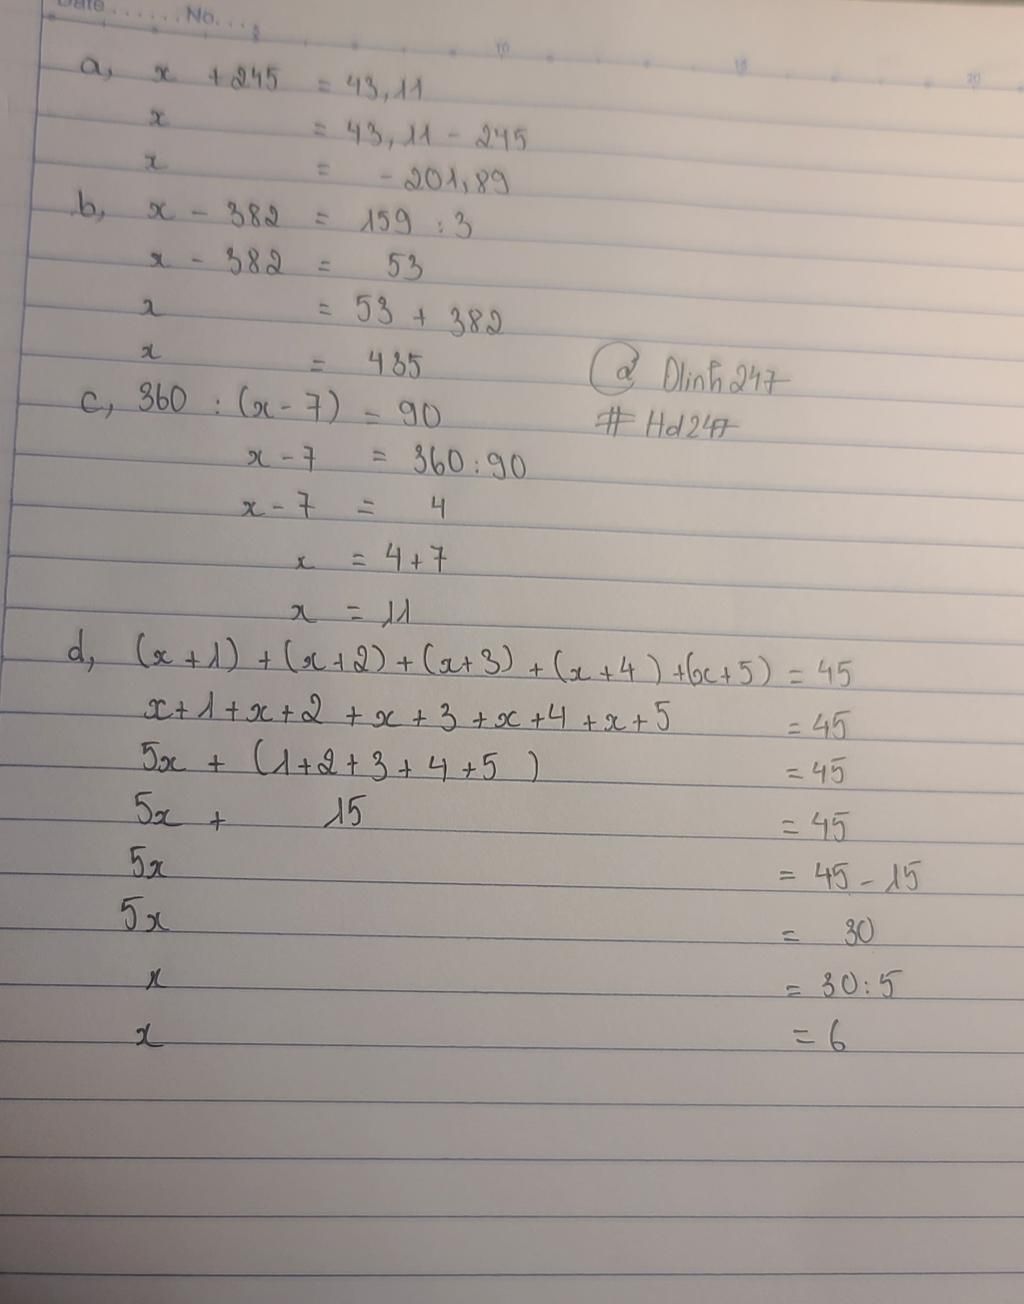 Date ...... No. ...
10
15
20
a, x + 245 = 43,11
x = 43,11 - 245
x = - 201,89
b, x - 382 = 159 : 3
x - 382 = 53
x = 53 + 382
x = 435
c, 360 : (x - 7) = 90
@ Dlinh247
# Hd247
x - 7 = 360 : 90
x - 7 = 4
x = 4 + 7
x = 11
d, (x + 1) + (x + 2) + (x + 3) + (x + 4) + (x + 5) = 45
x + 1 + x + 2 + x + 3 + x + 4 + x + 5 = 45
5x + (1 + 2 + 3 + 4 + 5) = 45
5x + 15 = 45
5x = 45 - 15
5x = 30
x = 30 : 5
x = 6